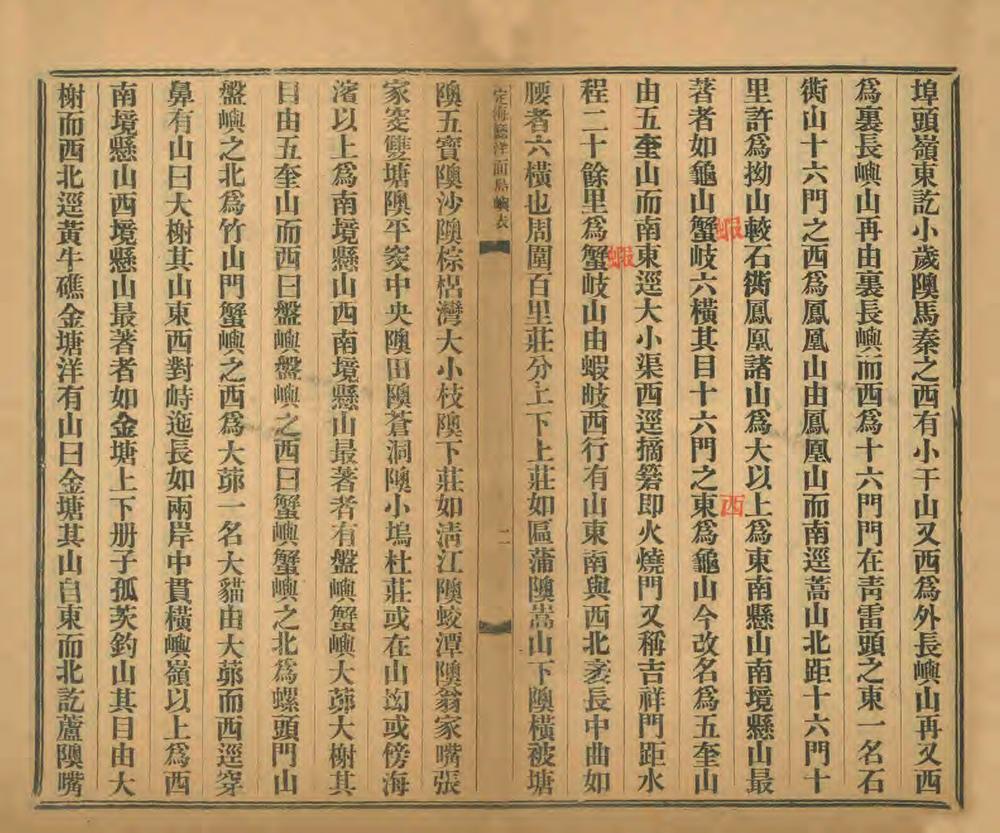 埠頭嶺東訖小歲隩馬秦之西有小干山又西爲外長嶼山再又西
爲裏長嶼山再由裏長嶼而西爲十六門門在靑雷頭之東一名石
衖山十六門之西爲鳳凰山由鳳凰山而南逕蒿山北距十六門十
里許爲拗山較石衖鳳凰諸山爲大以上爲東南懸山南境懸山最
蝦
西
著者如龜山蟹岐六橫其目十六門之東爲龜山今改名爲五奎山
由五奎山而南東逕大小渠西逕摘箬即火燒門又稱吉祥門距水
蝦
程二十餘里爲蟹岐山由蝦岐西行有山東南與西北袤長中曲如
腰者六橫也周圍百里莊分上下上莊如區蒲隩嵩山下隩橫被塘
定海廳洋面島嶼表
二
隩五寶隩沙隩棕梠灣大小枝隩下莊如淸江隩蛟潭隩翁家嘴張
家穾雙塘隩平穾中央隩田隩蒼洞隩小塢杜莊或在山岰或傍海
濱以上爲南境懸山西南境懸山最著者有盤嶼蟹嶼大茆大榭其
目由五奎山而西曰盤嶼盤嶼之西曰蟹嶼蟹嶼之北爲螺頭門山
盤嶼之北爲竹山門蟹嶼之西爲大茆一名大貓由大茆而西逕穿
鼻有山曰大榭其山東西對峙迤長如兩岸中貫橫嶼嶺以上爲西
南境懸山西境懸山最著者如金塘上下册子孤茨釣山其目由大
榭而西北逕黃牛礁金塘洋有山曰金塘其山自東而北訖蘆隩嘴